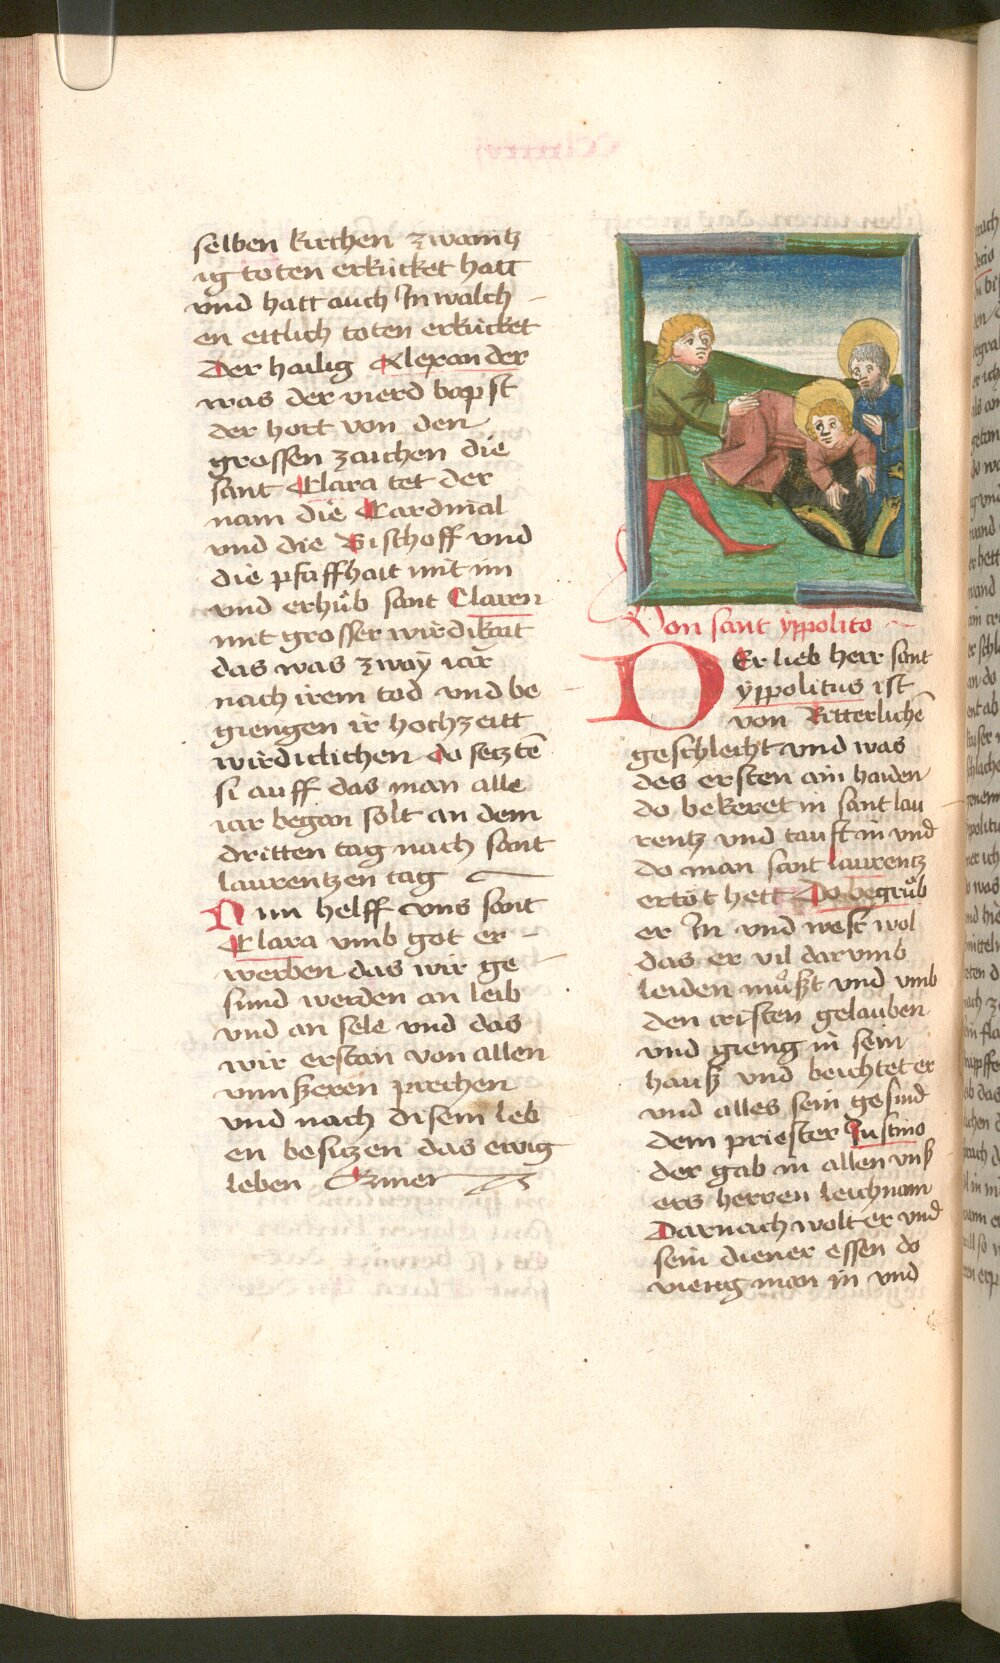 selben kirchen zwaintz
ig toten erkücket hatt
vnd hatt auch In walch
en ettlich toten erkücket
Der hailig Alexander
was der vierd bapst
der hort von den
grossen zaichen die
sant Clara tet der
nam die Cardinal
vnd die Bischoff vnd
die pfaffhait mit im
vnd erhůb sant Claren
mit grosser wirdikait
das was zway iar
nach irem tod vnd be
giengen ir hochzeitt
wirdiclichen do setztē
si auff das man alle
iar began solt an dem
dritten tag nach sant
laurentzen tag
Nun helff vns sant
Clara vmb got er
werben das wir ge
sund werden an leib
vnd an sele vnd das
wir erstan von allen
vnnßeren prechen
vnd nach disem leb
en besitzen das ewig
leben Amen
Von sant ÿppolito
DEr lieb herr sant
ÿppolitus ist
von Ritterlichē
geschlecht vnd was
des ersten ain haiden
do bekeret in sant lau
rentz vnd tauft in vnd
do man sant laurentz
ertöt hett Do begrůb
er In vnd west wol
das er vil darvmb
leiden můst vnd vmb
den cristen gelauben
vnd gieng in sein
hauß vnd beichtet er
vnd alles sein gesind
dem priester Justino
der gab in allen vnß
ers herren leichnam
Darnach wolt er vnd
sein diener essen do
vieng man in vnd